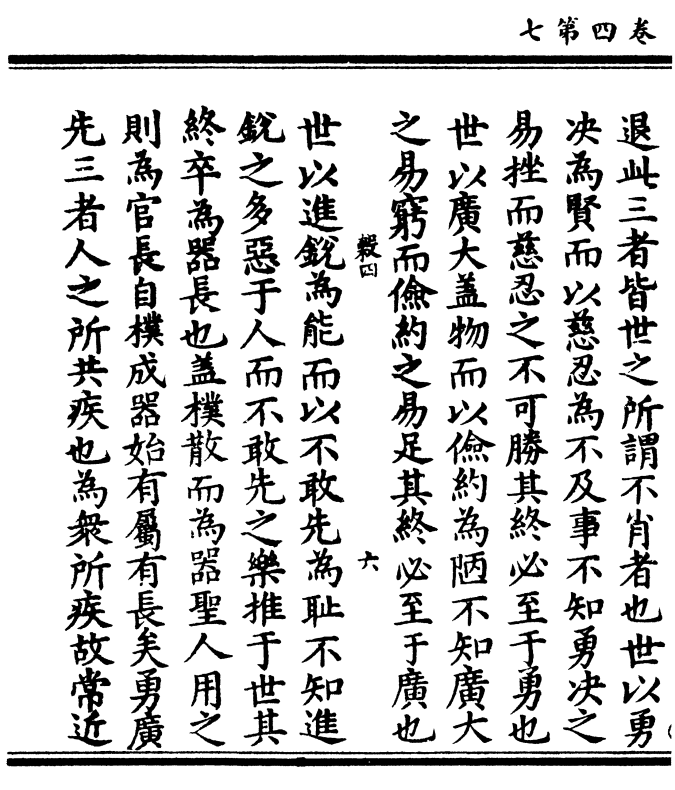 七第四卷
退此三者皆世之所謂不肖者也世以勇
决為賢而以慈忍為不及事不知勇决之
易挫而慈忍之不可勝其終必至于勇也
世以廣大蓋物而以儉約為陋不知廣大
之易窮而儉約之易足其終必至于廣也
榖四 六
世以進銳為能而以不敢先為耻不知進
銳之多惡于人而不敢先之樂推于世其
終卒為器長也蓋樸散而為器聖人用之
則為官長自樸成器始有屬有長矣勇廣
先三者人之所共疾也為衆所疾故常近